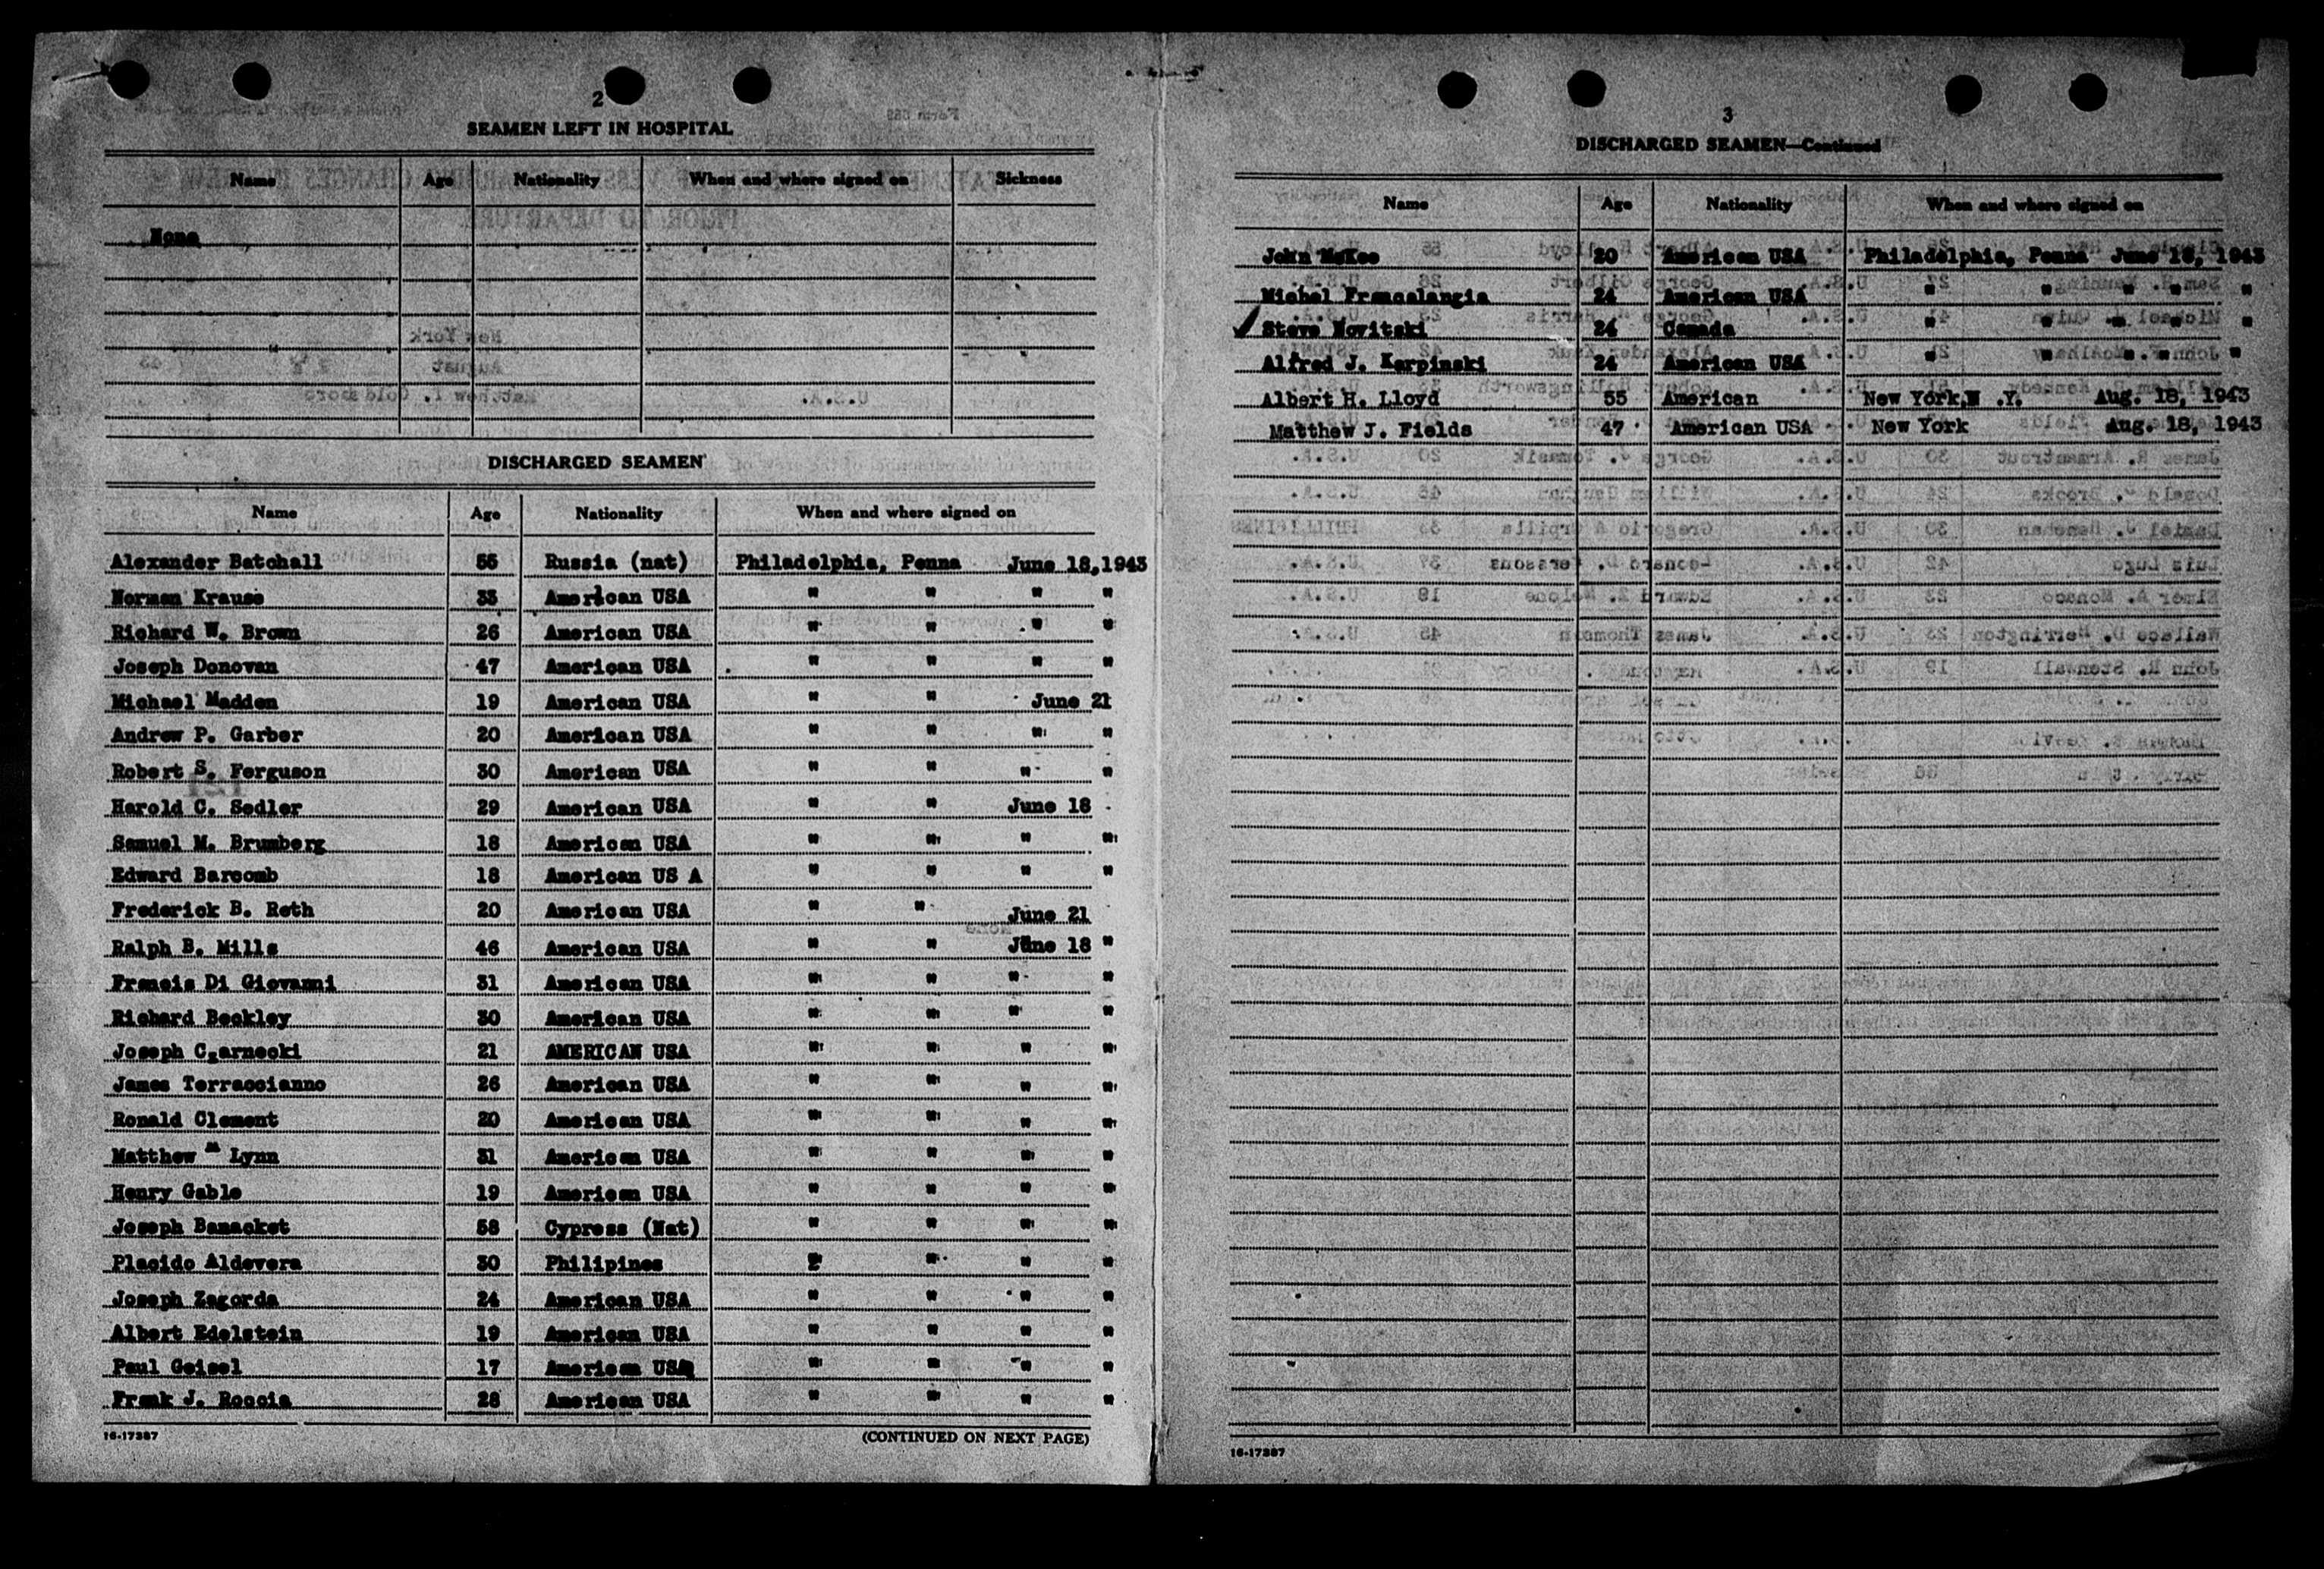 2
SEAMEN LEFT IN HOSPITAL
Name Age Nationality When and where signed on Sickness
None
DISCHARGED SEAMEN
Name Age Nationality When and where signed on
Alexander Batchall 55 Russia (nat) Philadelphia, Penna June 18,1943
Norman Krause 33 American USA " " " "
Richard W. Brown 26 American USA " " " "
Joseph Donovan 47 American USA " " " "
Michael Madden 19 American USA " " June 21
Andrew P. Garber 20 American USA " " " "
Robert S. Ferguson 30 American USA " " " "
Harold C. Sedler 29 American USA " " June 18
Samuel M. Brumberg 18 American USA " " " "
Edward Barcomb 18 American US A " " " "
Frederick B. Reth 20 American USA " " June 21
Ralph B. Mills 46 American USA " " June 18 "
Francis Di Giovanni 31 American USA " " " "
Richard Beckley 30 American USA " " " "
Joseph Czarnecki 21 AMERICAN USA " " " "
James Terraccianno 26 American USA " " " "
Ronald Clement 20 American USA " " " "
Matthew M Lynn 31 American USA " " " "
Henry Gable 19 American USA " " " "
Joseph Banacket 58 Cypress (Nat) " " " "
Placido Aldevera 30 Philipines " " " "
Joseph Zagorda 24 American USA " " " "
Albert Edelstein 19 American USA " " " "
Paul Geisel 17 American USA " " " "
Frank J. Roccia 28 American USA " " " "
16-17387 (CONTINUED ON NEXT PAGE)
3
DISCHARGED SEAMEN—Continued
Name Age Nationality When and where signed on
John McKee 20 American USA Philadelphia, Penna June 18, 1943
Michel Francalangia 24 American USA " " " "
Steve Novitski 24 Canada " " " "
Alfred J. Karpinski 24 American USA " " " "
Albert H. Lloyd 55 American New York,N .Y. Aug. 18, 1943
Matthew J. Fields 47 American USA New York Aug. 18, 1943
16-17387